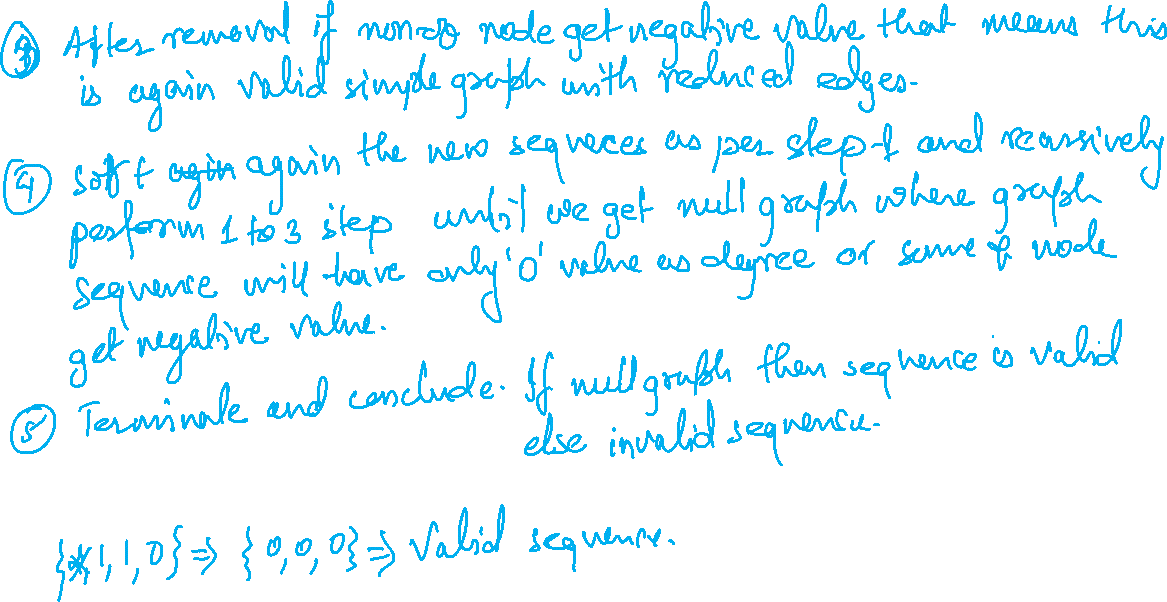 ③ After removal if non of node get negative value that means this
is again valid simple graph with reduced edges.
④ Sort again the new sequences as per step-1 and recursively
perform 1 to 3 step until we get null graph where graph
sequence will have only '0' value as degree or some of node
get negative value.
⑤ Terminate and conclude. If null graph then sequence is valid
else invalid sequence.
{1,1,0} ⇒ {0,0,0} ⇒ Valid sequence.